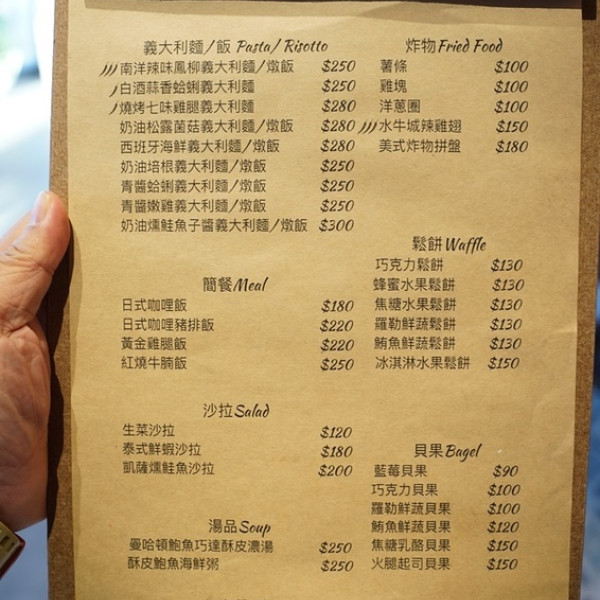 義大利麵/飯 Pasta/Risotto
南洋辣味鳳柳義大利麵/燉飯 $250
白酒蒜香蛤蜊義大利麵 $250
燒烤七味雞腿義大利麵 $280
奶油松露菌菇義大利麵/燉飯 $280
西班牙海鮮義大利麵/燉飯 $280
奶油培根義大利麵/燉飯 $250
青醬蛤蜊義大利麵/燉飯 $250
青醬嫩雞義大利麵/燉飯 $250
奶油燻鮭魚子醬義大利麵/燉飯 $300
簡餐 Meal
日式咖哩飯 $180
日式咖哩豬排飯 $220
黃金雞腿飯 $220
紅燒牛腩飯 $250
沙拉 Salad
生菜沙拉 $120
泰式鮮蝦沙拉 $180
凱薩燻鮭魚沙拉 $200
湯品 Soup
曼哈頓鮑魚巧達酥皮濃湯 $250
酥皮鮑魚海鮮粥 $250
炸物 Fried Food
薯條 $100
雞塊 $100
洋蔥圈 $100
水牛城辣雞翅 $150
美式炸物拼盤 $180
鬆餅 Waffle
巧克力鬆餅 $130
蜂蜜水果鬆餅 $130
焦糖水果鬆餅 $130
羅勒鮮蔬鬆餅 $130
鮪魚鮮蔬鬆餅 $130
冰淇淋水果鬆餅 $150
貝果 Bagel
藍莓貝果 $90
巧克力貝果 $100
羅勒鮮蔬貝果 $100
鮪魚鮮蔬貝果 $120
焦糖乳酪貝果 $150
火腿起司貝果 $150